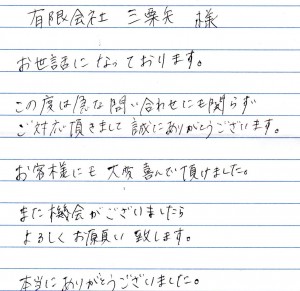 有限会社 三栗矢 様
お世話になっております。
この度は急な問い合わせにも関らず
ご対応頂きまして誠にありがとうございます。
お客様にも大変喜んで頂けました。
また機会がございましたら
よろしくお願い致します。
本当にありがとうございました。